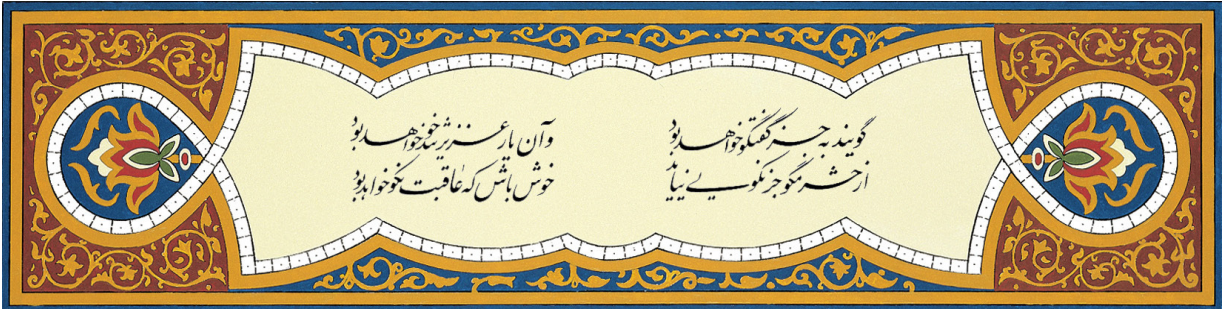 گویند به حشر گفتگو خواهد بود وآن یار عزیز تندخو خواهد بود
از جز نکویی نیاید خوش باش که عاقبت نکو خواهد بود